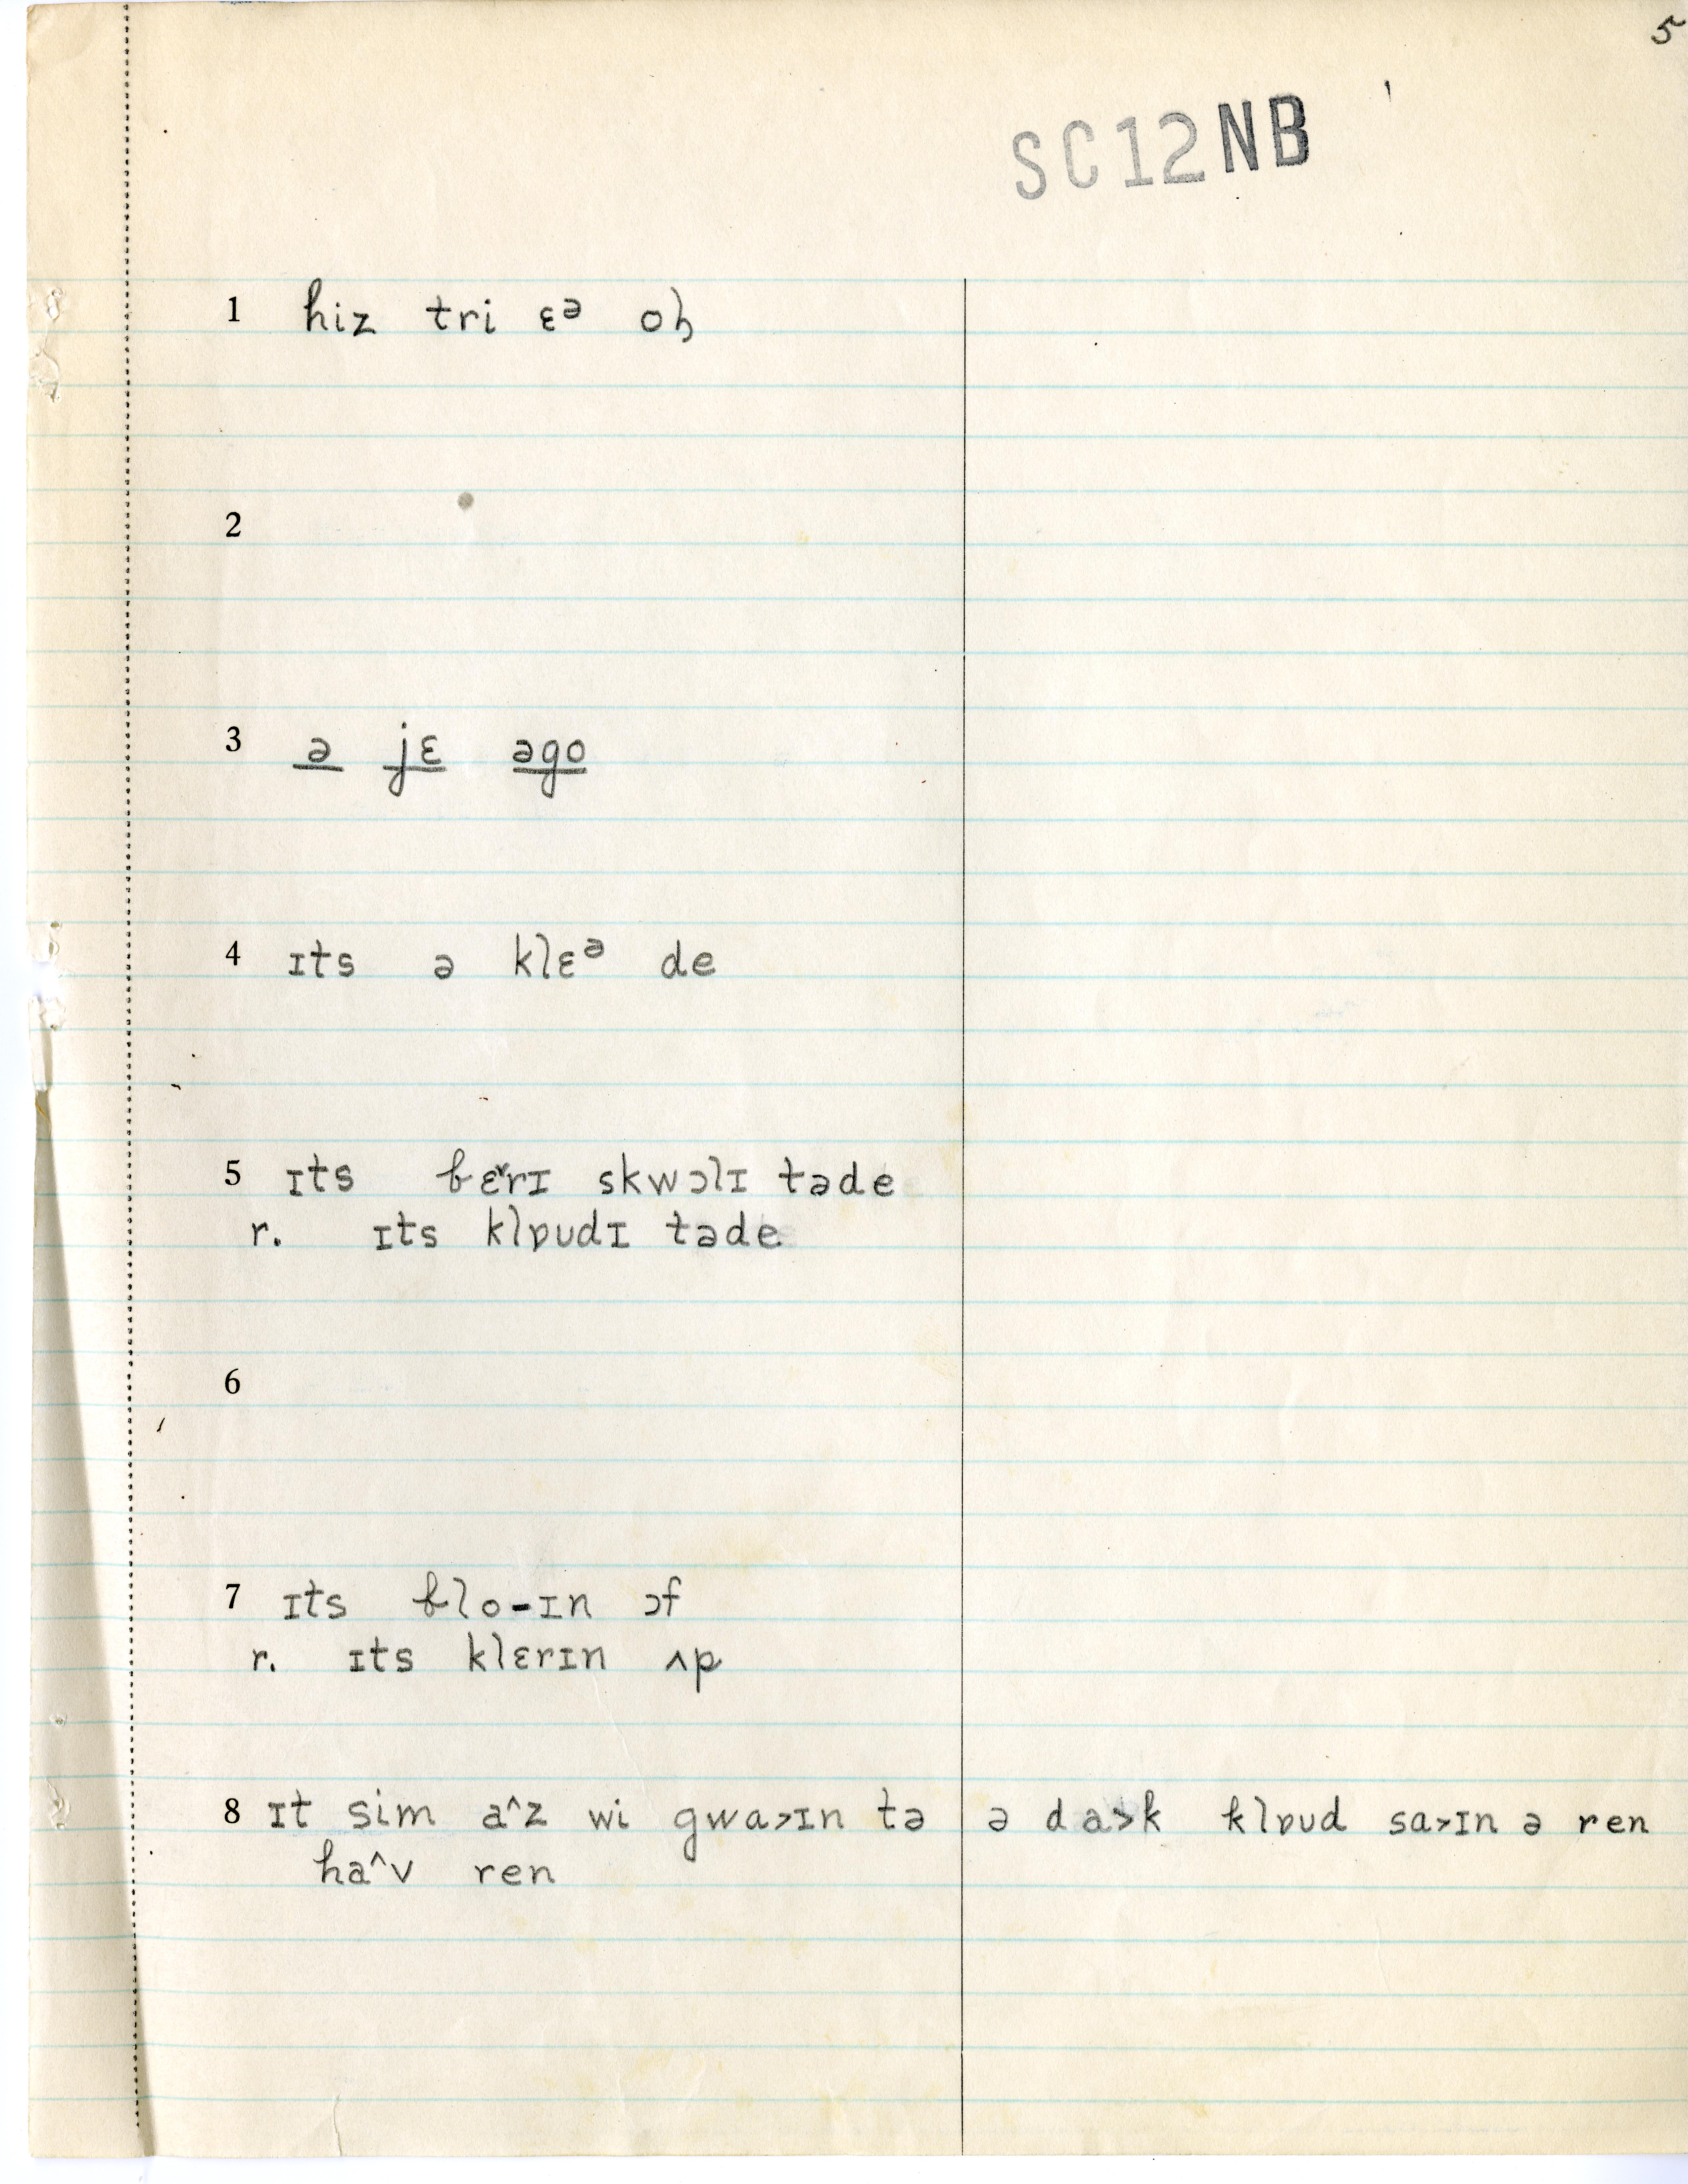 5
SC12NB
1 hiz tri ɛᵊ oɦ
2
3 ə jɛ əgo
4 ɪts ə klɛᵊ de
5 ɪts ɓɛ˅rɪ skwɔlɪ təde
r. ɪts klɒudɪ təde
6
7 ɪts ɓlo-ɪn ɔf
r. ɪts klɛrɪn ʌp
8 ɪt sim a^z wi gwa>ɪn tə ə da>k klɒud sa>ɪn ə ren
ha^v ren